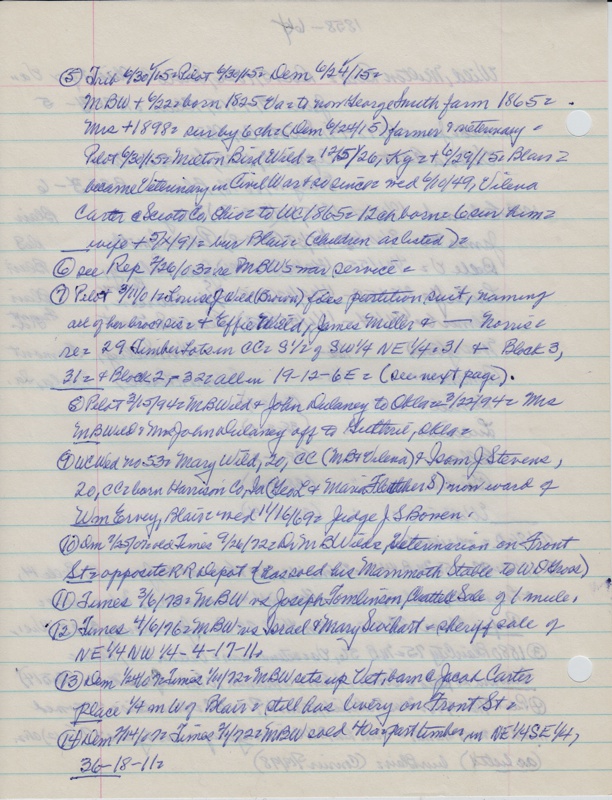 ⑤ Trib 6/30/15= Pilot 6/30/15= Dem 6/24/15=
MBW + 6/22= born 1825 Va= to now George Smith farm 1865=
Mrs + 1898= surv by 6 ch= (Dem 6/24/15) farmer & veterinary =
Pilot 6/30/15= Milton Bird Wild= 12/5/26, Ky= + 6/29/15= Blair=
became Veterinary in Civil War & so since= wed 6/10/49, Vilena
Carter @ Scioto Co, Ohio= to WC 1865= 12 ch born= 6 surv him=
wife + 5/ /91= bur Blair= (children as listed)=
⑥ see Rep 3/26/03= re MBW's war service =
⑦ Pilot 3/ /01= Louise J Wild (Brown) files partition suit, naming
all of her bros & sis= + Effie Wild, James Miller & — Norris=
re= 29 timber lots in CC= S½ of SW¼ NE¼= 31 + Block 3,
31= & Block 2,= 32= all in 19-12-6E= (see next page).
⑧ Pilot 3/15/94= MBWild & John Dulaney to Okla= 3/22/94= Mrs
MBWild= Mrs John Dulaney off to Guthrie, Okla=
⑨ WC Wed no 53= Mary Wild, 20, CC (MB & Vilena) & Isom J Stevens,
20, CC= born Harrison Co, Ia (Geo & Maria Fletcher S) now ward of
Wm Ervey, Blair= wed 11/16/69= Judge J S Bowen.
⑩ Dem 7/25/07= old Times 9/26/72= Dr MBWild, Veterinarian on Front
St= opposite RR Depot (has sold his Mammoth Stable to W D Gross)
⑪ Times 3/6/73= MBW vs Joseph Tomlinson, Chattel Sale of 1 mule.
⑫ Times 4/6/76= MBW vs Israel & Mary Swihart = sheriff sale of
NE¼ NW¼-4-17-11=
⑬ Dem 1/24/07= Times 1/ /72= MBW sets up Vet barn @ Jacob Carter
place ¼ m W of Blair= still has livery on Front St=
⑭ Dem 2/14/07= Times 3/ /72= MBW sold 40a= part timber, in NE¼ SE¼,
36-18-11=